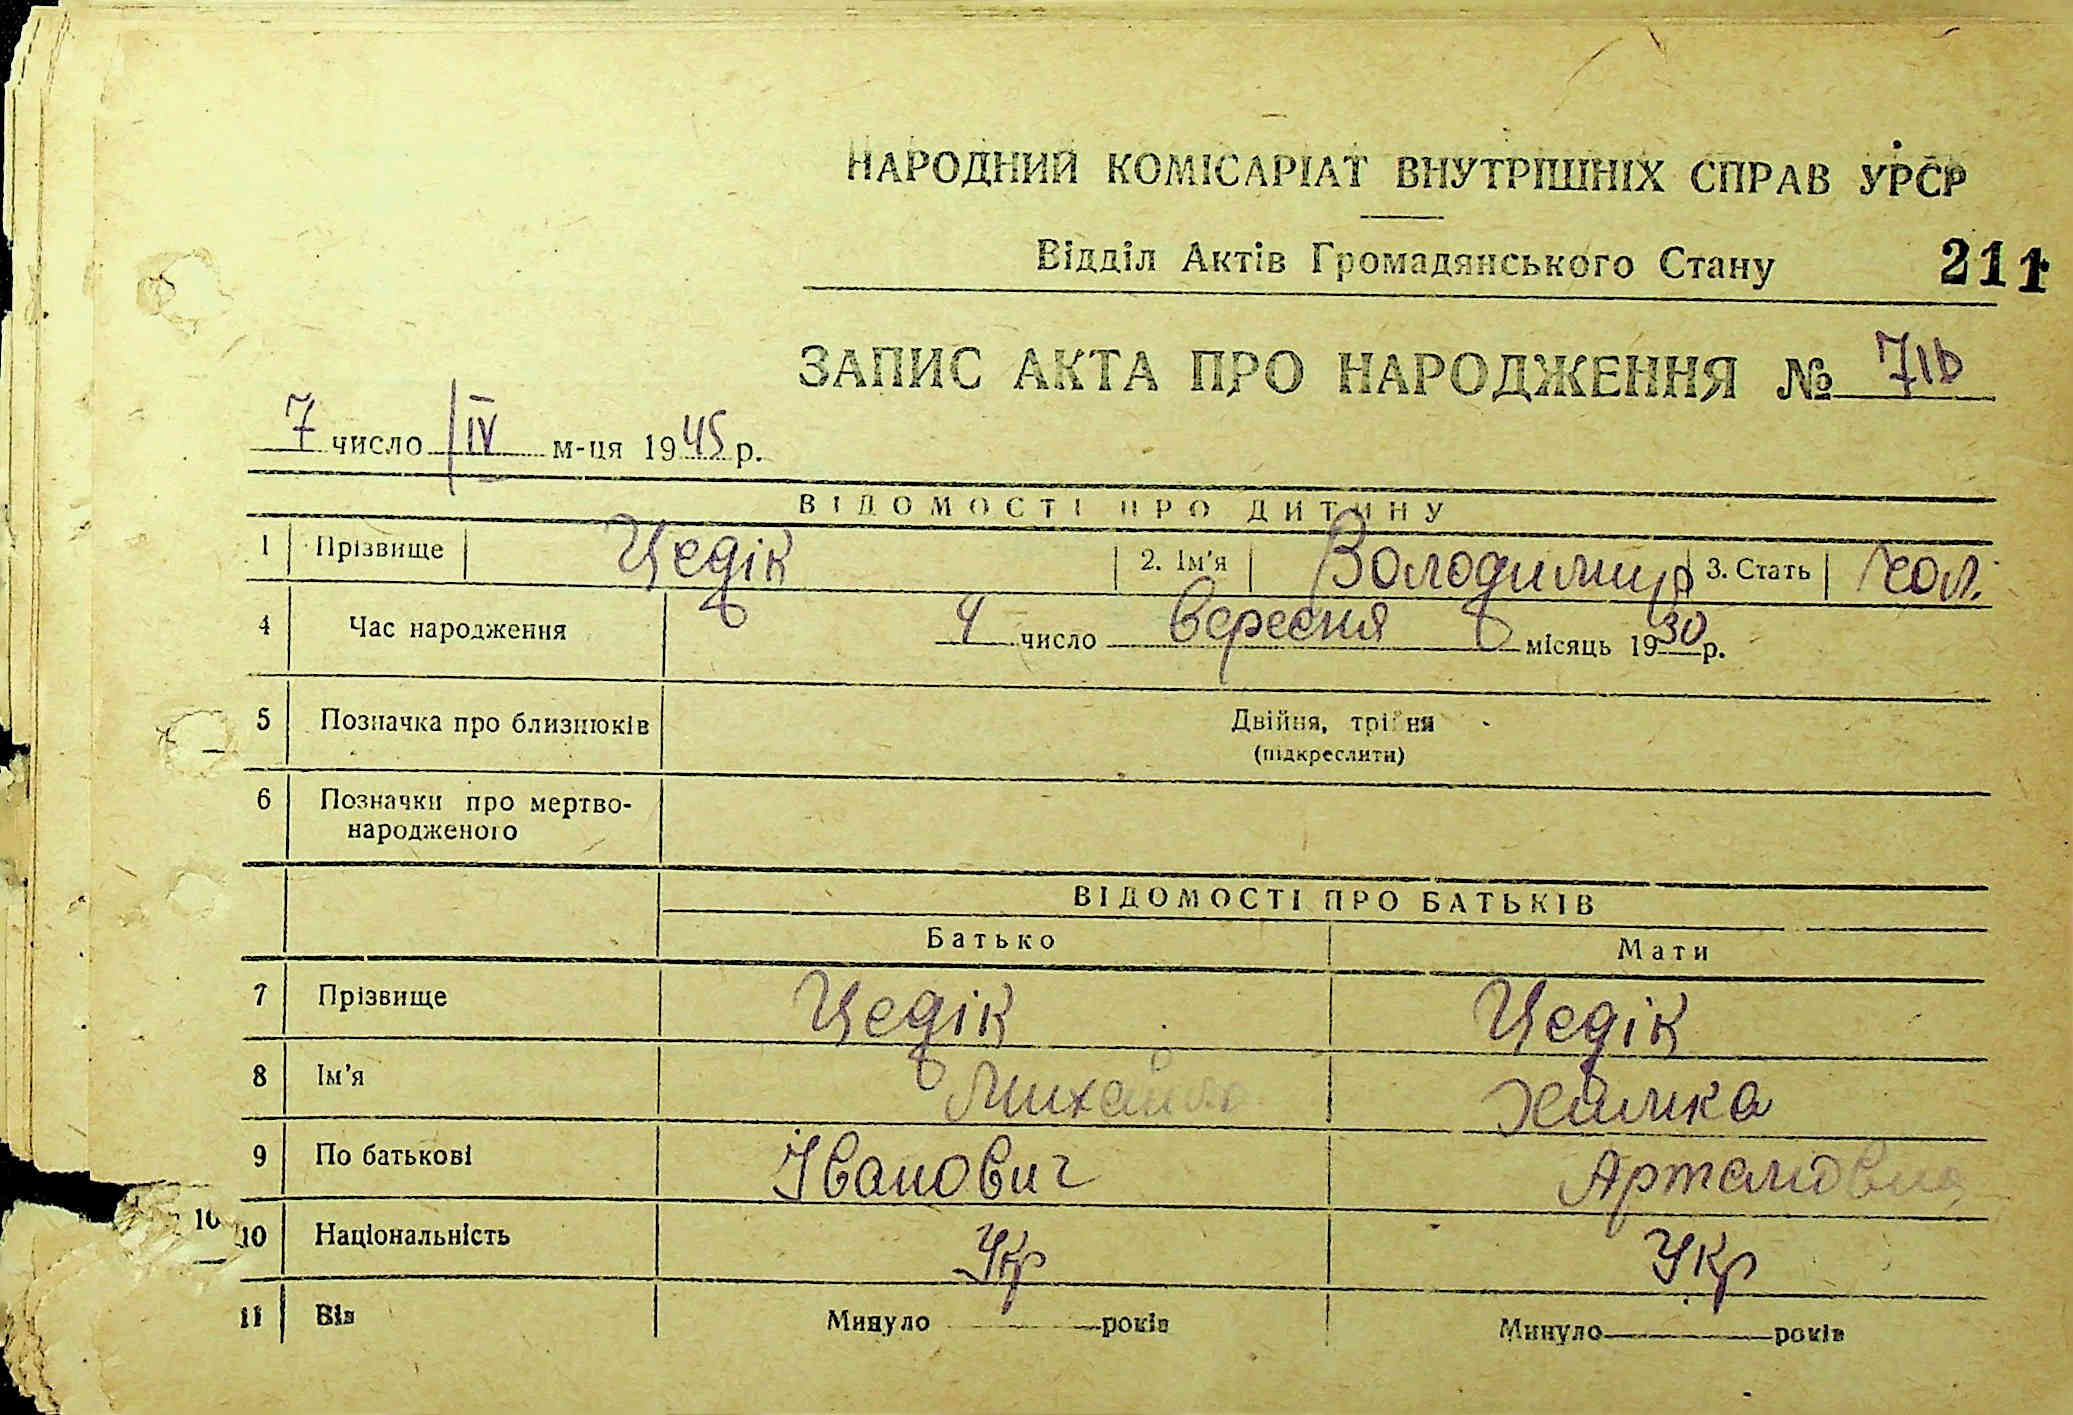 НАРОДНИЙ КОМІСАРІАТ ВНУТРІШНІХ СПРАВ УРСР
Відділ Актів Громадянського Стану 211
ЗАПИС АКТА ПРО НАРОДЖЕННЯ №
7 число IV м-ця 1945 р.
ВІДОМОСТІ ПРО ДИТИНУ
1 Прізвище Цедік 2. Ім'я Володимир 3. Стать чол.
4 Час народження 4 число вересня місяць 1930 р.
5 Позначка про близнюків Двійня, трійня
(підкреслити)
6 Позначки про мертво-
народженого
ВІДОМОСТІ ПРО БАТЬКІВ
Батько Мати
7 Прізвище Цедік Цедік
8 Ім'я Михайло
9 По батькові Іванович Артемовна
10 10 Національність Укр Укр
11 Вік Минуло років Минуло років